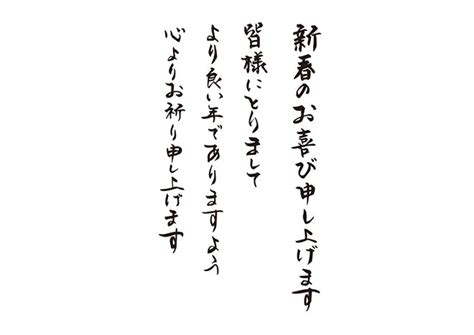 新春のお喜び申し上げます
皆様にとりまして
より良い年でありますよう
心よりお祈り申し上げます